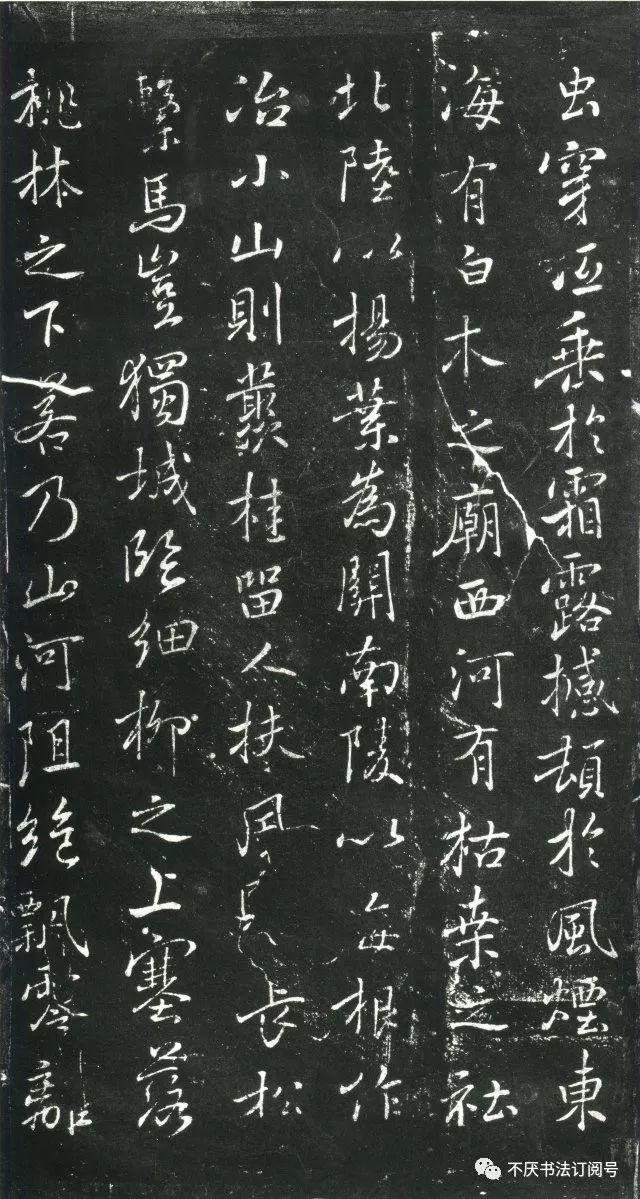 虫穿低垂於霜露撼頓於風煙東
海有白木之廟西河有枯桑之社
北陸以揚葉為關南陵以每根作
冶小山則叢桂留人扶風長松
繫馬豈獨城臨細柳之上塞落
桃林之下若乃山河阻絕飄零離
不厌书法订阅号